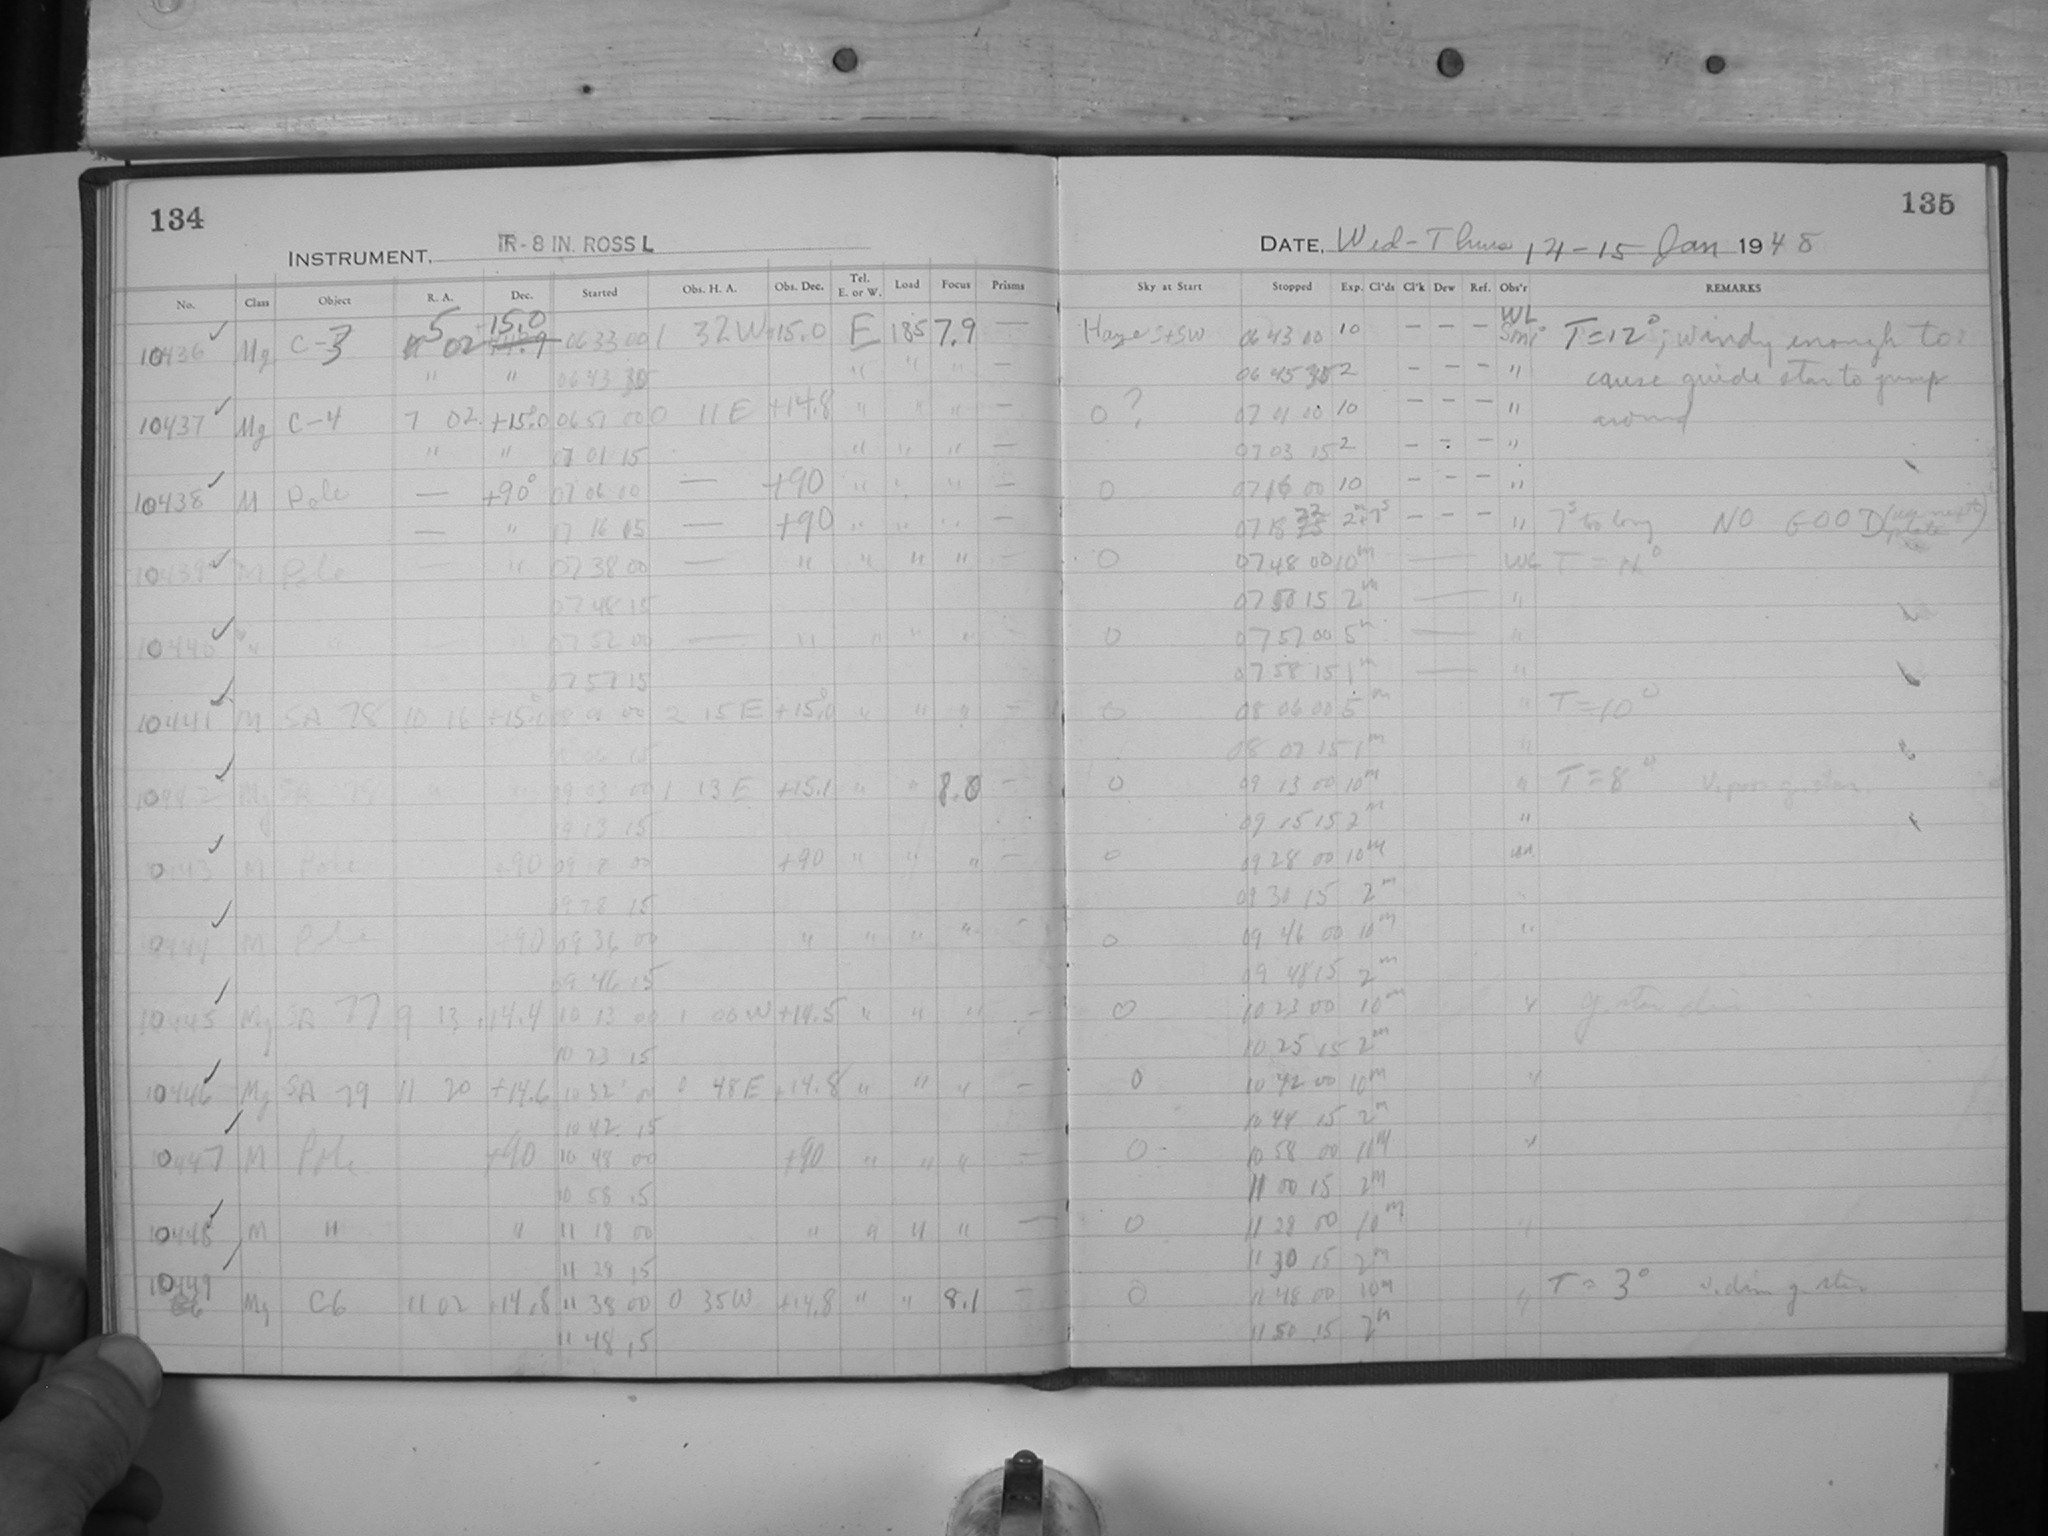 134
INSTRUMENT. IR-8 IN. ROSS L
No. Class Object R. A. Dec. Started Obs. H. A. Obs. Dec. Tel. E. or W. Load Focus Prisms
10436 Mg C-3 5 02 +15.0 06 33 00 1 32 W +15.0 E 185 7.9 —
" " 06 43 30 " " " —
10437 Mg C-4 7 02 +15.0 06 51 00 0 11 E +14.8 " " " —
" " 07 01 15 " " " —
10438 M Pole — +90° 07 06 00 — +90 " " " —
— " 17 16 15 — +90 " " " —
10439 M Pole — " 07 38 00 — " " " " —
07 48 15
10440 " " — " 07 52 00 — " " " " —
07 57 15
10441 M SA 78 10 16 +15.0 08 01 00 2 15 E +15.0 " " " —
15
10442 Mg 09 03 00 1 13 E +15.1 " " 8.0 —
09 13 15
10443 M Pole +90 09 18 00 +90 " " " —
09 28 15
10444 M Pole +90 09 36 00 " " " " —
09 46 15
10445 Mg SA 77 9 13 +14.4 10 13 00 1 00 W +14.5 " " " —
10 23 15
10446 Mg SA 79 11 20 +14.6 10 32 00 0 48 E +14.8 " " " —
10 42 15
10447 M Pole +90 10 48 00 +90 " " " —
10 58 15
10448 M " " 11 18 00 " " " " —
11 28 15
10449
Mg C6 11 02 +14.8 11 38 00 0 35 W +14.8 " " 8.1 —
11 48 15
135
DATE, Wed-Thurs 14-15 Jan 1948
Sky at Start Stopped Exp. Cl'ds Cl'k Dew Ref. Obs'r REMARKS
WL
Haze S+SW 06 43 00 10 — — — Smi T=12°; windy enough to
06 45 35 2 — — — " cause guide star to jump
0 ? 07 01 00 10 — — — " around
07 03 15 2 — — — "
0 07 16 00 10 — — — "
07 18 22 2m+7s — — — " 7s too long NO GOOD (use next plate)
0 07 48 00 10m — WL T = 11°
07 50 15 2m — "
0 07 57 00 5m — "
07 58 15 1m — "
0 08 06 00 5m " T=10°
08 07 15 1m "
0 09 13 00 10m " T=8° V. poor g. star.
09 15 15 2m "
0 09 28 00 10m
09 30 15 2m
0 09 46 00 10m "
09 48 15 2m
0 10 23 00 10m " g. star dim
10 25 15 2m
0 10 42 00 10m "
10 44 15 2m
0 10 58 00 "
11 00 15 2m
0 11 28 00 10m "
11 30 15 2m
0 11 48 00 10m " T = 3° v. dim g. star
11 50 15 2m